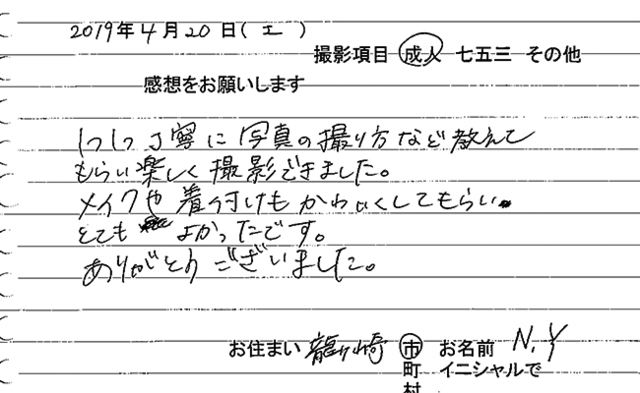 2019年4月20日(土)
撮影項目 成人 七五三 その他
感想をお願いします
1つ1つ丁寧に写真の撮り方など教えて
もらい楽しく撮影できました。
メイクや着付けもかわいくしてもらい
とても よかったです。
ありがとうございました。
お住まい 龍ヶ崎 市 お名前 N.Y
町 イニシャルで
村